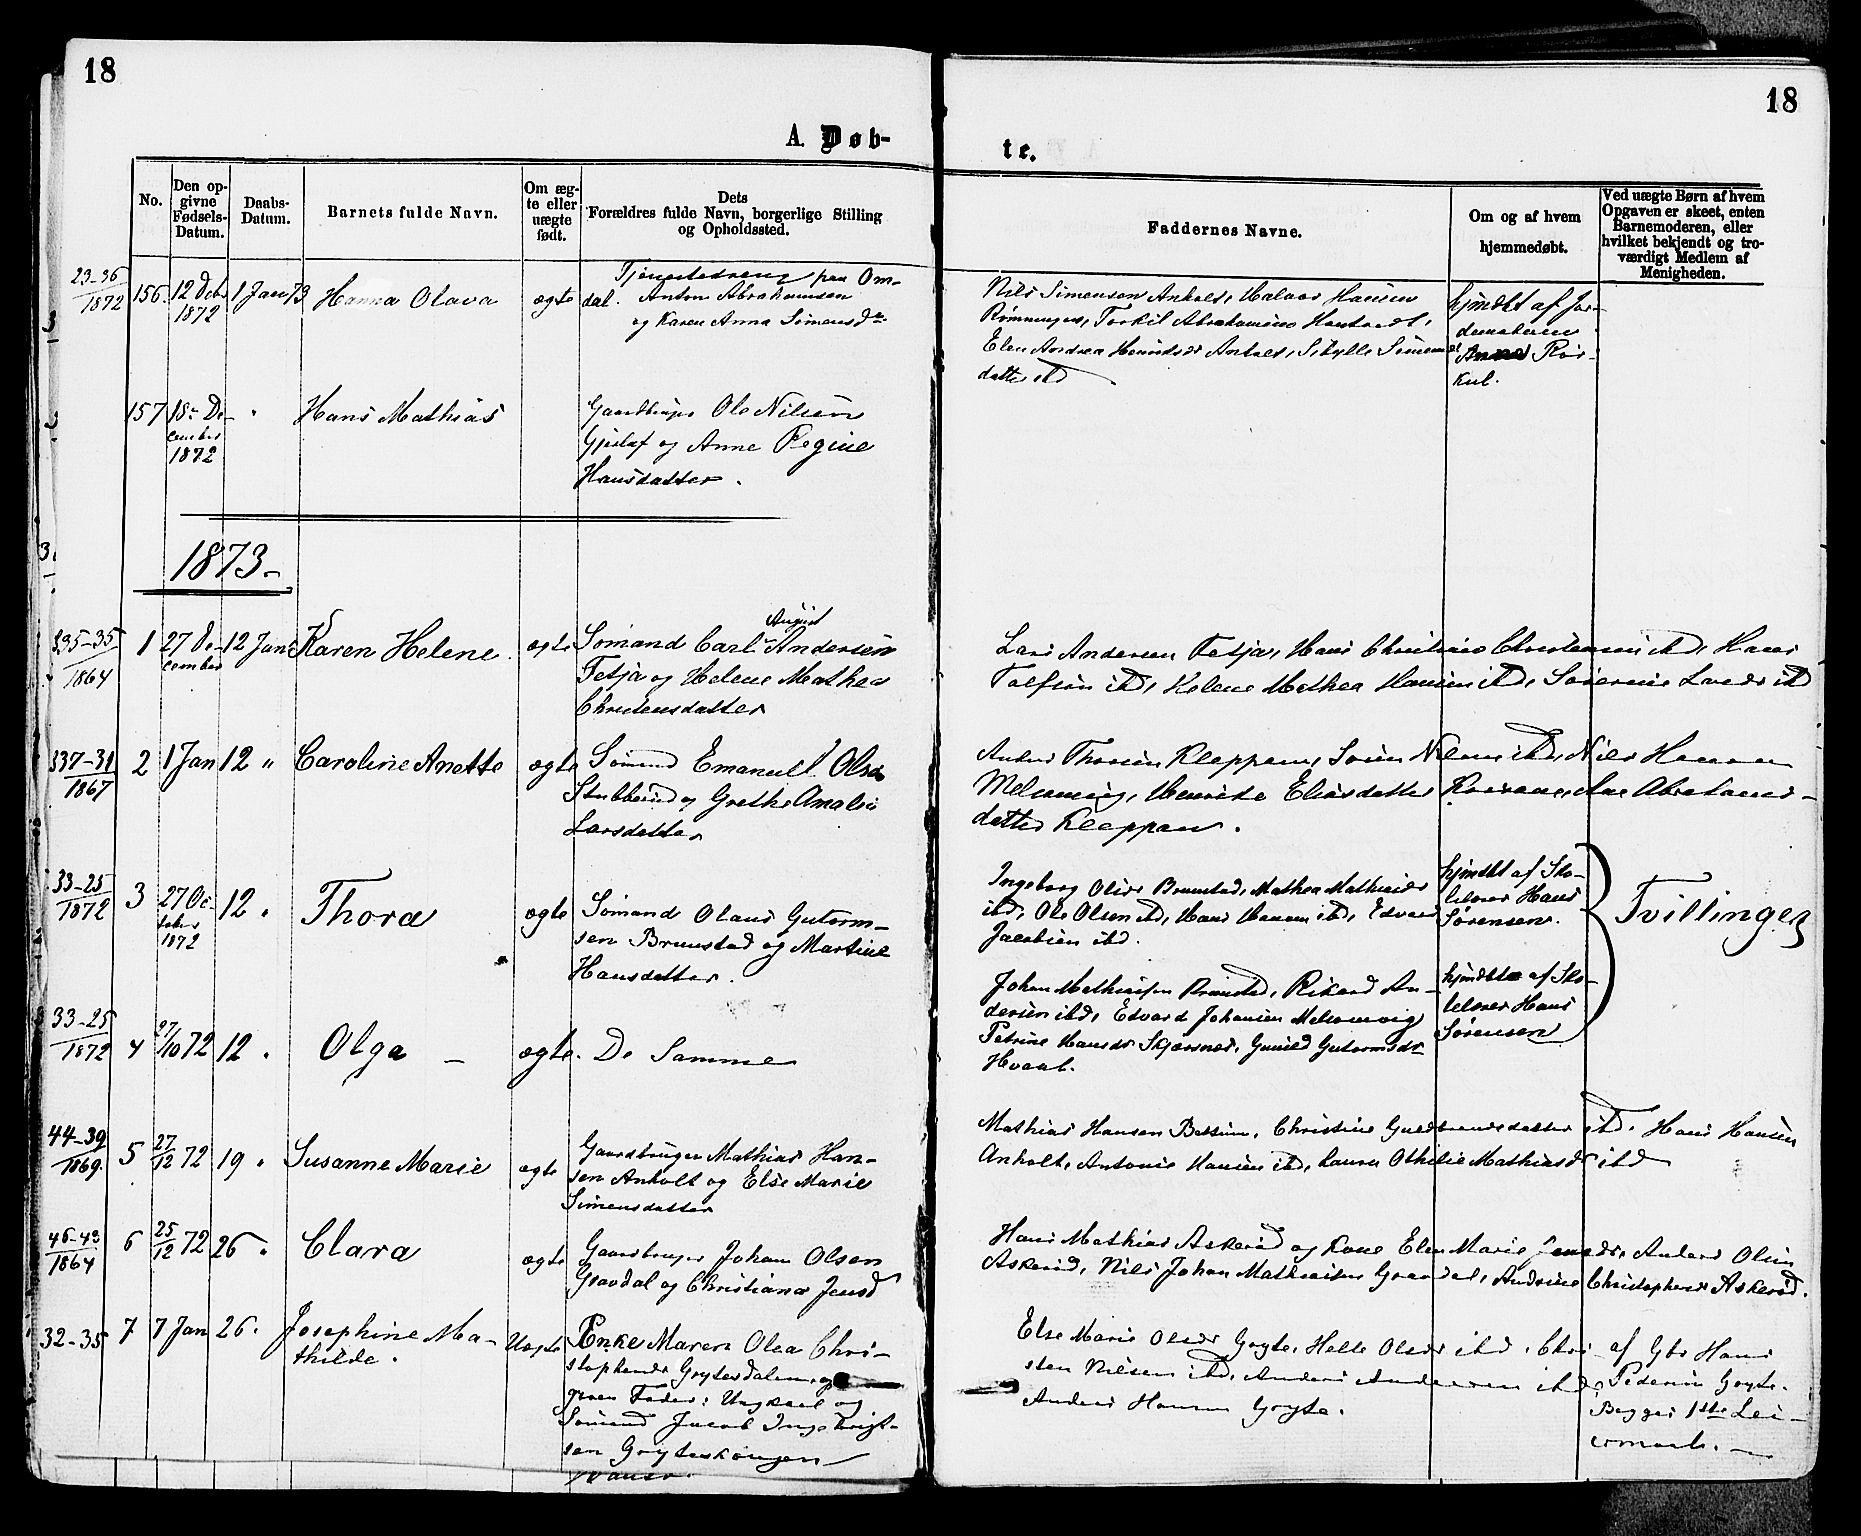 18
18
A. Døb-
te.
No.
Den op-
givne
Fødsels-
Datum.
Daabs-
Datum.
Barnets fulde Navn.
Om æg-
te eller
uægte
født.
Dets
Forældres fulde Navn, borgerlige Stilling
og Opholdssted.
Faddernes Navne.
Om og af hvem
hjemmedøbt.
Ved uægte Børn af hvem
Opgaven er skeet, enten
Barnemoderen, eller
hvilket bekjendt og tro-
værdigt Medlem af
Menigheden.
23-36
1872
156.
12 Decb
1872
1 Jan 73
Hanna Olava
ægte
Tjenestedreng paa Om-
dal. Anton Abrahamsen
og Karen Anna Simensd
Nils Simensen Anholt, Halvor Hansen
Torkil Abrahamsen
Elen Andrea Anholt, Sibylle Simens
datter ibd
hjmdbt af Jor-
demoderen
157
18 De-
cember
1872
"
Hans Mathias
Gaardbruger Ole Nilsen
og Anne Regine
Hansdatter.
1873.
35-35
1864
1
27 De-
cember
12 Jan
Karen Helene
ægte
August
Sømand Carl Andersen
Fetja og Helene Mathea
Christensdatter
Lars Andersen Fetja, Hans Christian Christensen ibd, Hans
ibd, Helene Mathea Hansen ibd, ibd
337-31
1867
2
1 Jan
12 "
Caroline Anette
ægte
Sømand Emanuel Olsen
og Grethe Amalie
Larsdatter
Anders Kleppan, Søren Nilsen ibd, Nils Hansen
Melsomvig, Elisdatter Abrahams-
datter Kleppan.
33-25
1872
3
27 Oc-
tober
1872
12 "
Thora
ægte
Sømand Olaus Gutorm-
sen Brunstad og Martine
Hansdatter.
Ingeborg Olsdr Brunstad, Mathea Mathiasdr
ibd, Ole Olsen ibd, Hans Hansen ibd, Edvard
Jacobsen ibd.
hjmdbt af Sko-
lelærer Hans
Sørensen.
Tvillinger
33-25
1872
4
27/10 72
12 "
Olga -
ægte.
De Samme
Johan Mathiassen Brunstad, Rikard An-
dersen ibd, Edvard Johansen Melsomvig
Petrine Hansdr Gunild Gutormsdr
hjmdbt af Sko-
lelærer Hans
Sørensen
44-39
1869.
5
27/12 72
19 "
Susanne Marie
ægte
Gaardbruger Mathias Han-
sen Anholt og Else Marie
Simensdatter
Mathias Hansen Christine Guldbrandsdatter ibd. Hans Hansen
Anholt, Antonie Hansen ibd, Laura Othilie Mathiasdr ibd
46-43
1864
6
25/12 72
26 "
Clara
ægte
Gaardbruger Johan Olsen
Gravdal og Christiana Jensd
Hans Mathias Askerød og Kone Elen Marie Jensdr, Anders Olsen
Askerød, Nils Johan Mathiassen Gravdal, Andrine Christophersdr Askerød.
32-35
7
7 Jan
26.
Josephine Ma-
thilde.
Uægte
Enke Maren Olea Chri-
stophersdr Grytesdalen, og
given Fader: Ungkarl og
Sømand Jacob Ingebrigt-
sen
Else Marie Olsdr Gryte, Helle Olsdr ibd, Chri-
sten Nilsen ibd, Anders Andersen ibd,
Anders Hansen Gryte.
af Gbr Hans
Pedersen Gryte.
Begges 1ste Lei-
ermaal.